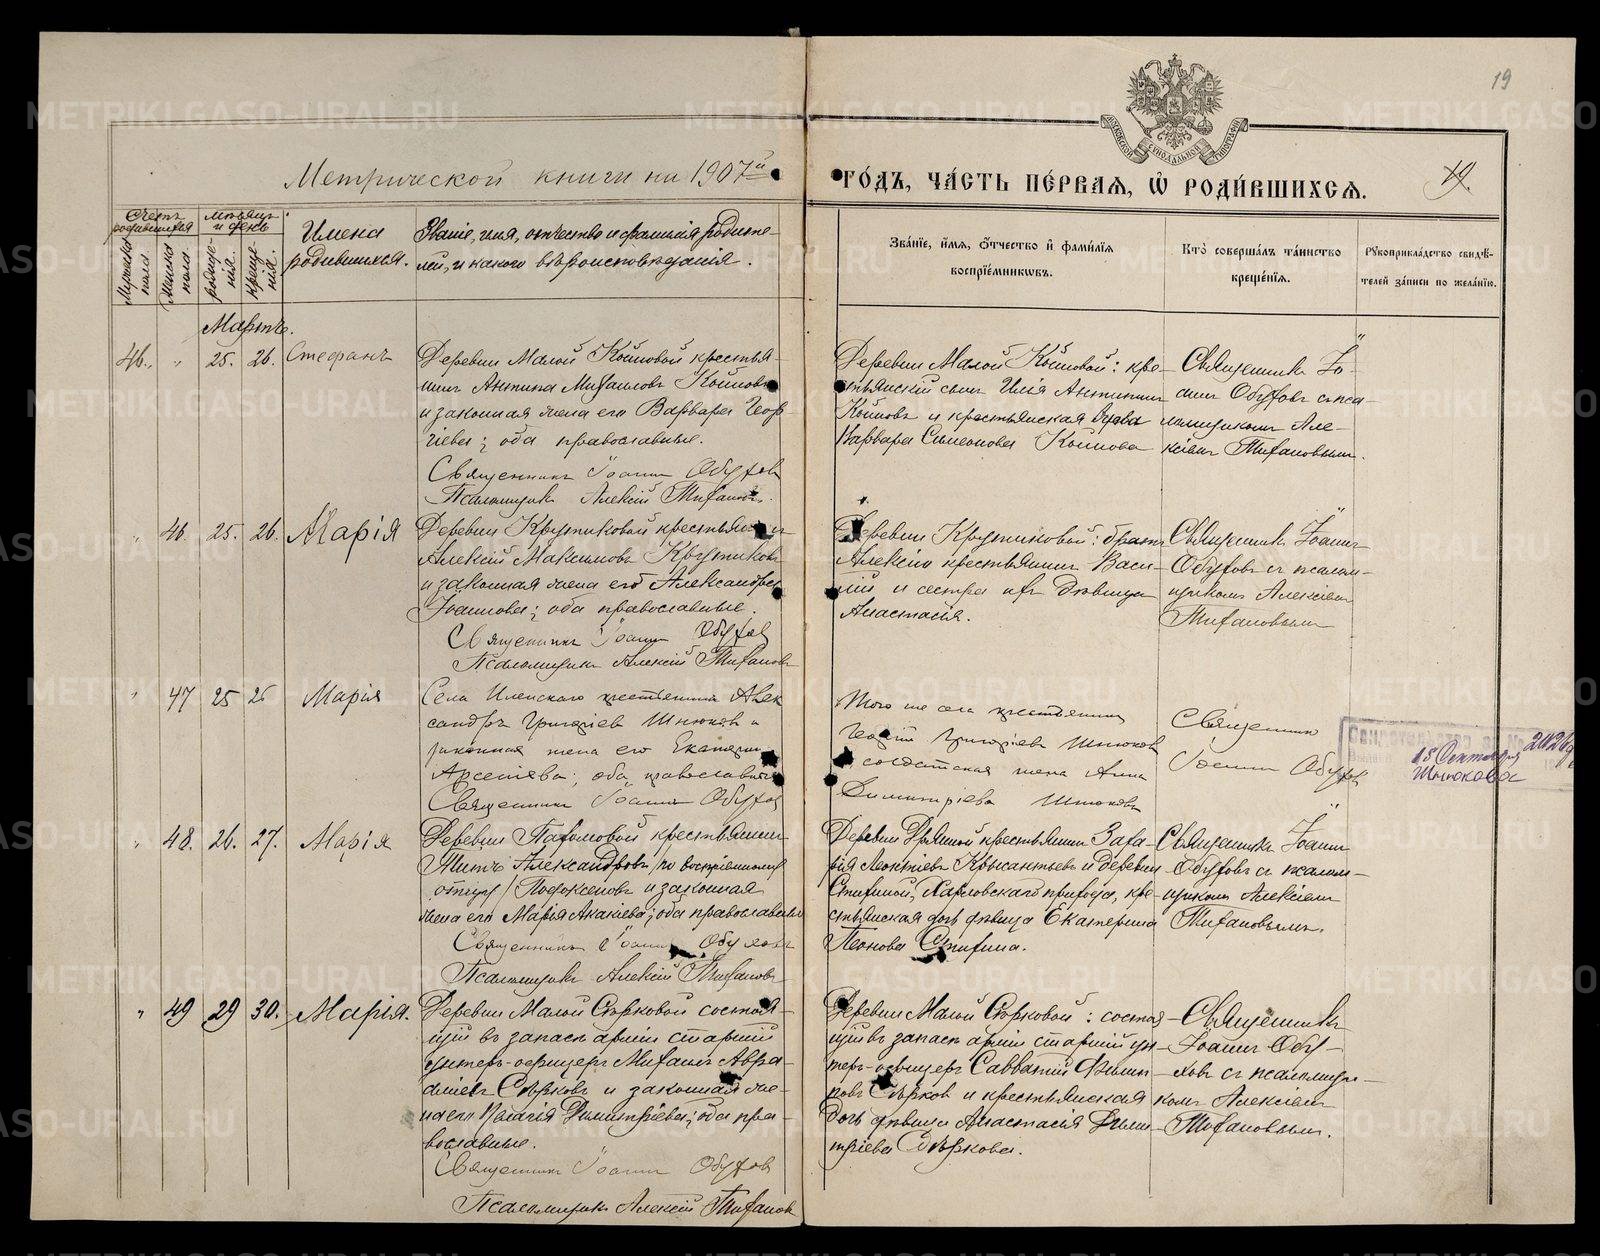 19
Метрической книги на 1907й
ГО́ДЪ, ЧА́СТЬ ПЕ́РВАѦ, Ѡ҆ РОДИ́ВШИХСѦ.
19.
Счетъ родившихся
Мужска пола
Женска пола
Мѣсяцъ и день
рожде-нія.
креще-нія.
Имена родившихся.
Званіе, имя, отчество и фамилія родите-
лей, и какого вѣроисповѣданія.
Зва́нїе, и҆́мѧ, ѻ҆́тчество и҆ фами́лїѧ
воспрїе́мниковъ.
Кто̀ соверша́лъ та́инство
креще́нїѧ.
Рꙋкоприкла́дство свидѣ́-
телей за́писи по жела́нїю.
Мартъ.
46. " 25. 26. Стефанъ
Деревни Малой
крестья-
нинъ Антипа Михаиловъ
и законная жена его Варвара Геор-
гіева; оба православные.
Священникъ Іоаннъ Обуховъ
Псаломщикъ Алексій Тихановъ.
Деревни Малой
: кре-
стьянскій сынъ Илія Антипинъ
и крестьянская вдова
Варвара Симеонова
Священникъ Іо-
аннъ Обуховъ съ пса-
ломщикомъ Але-
ксіемъ Тихановымъ.
" 46. 25. 26. Марія
Деревни Крутиковой крестьянинъ
Алексій Максимовъ Крутиковъ
и законная жена его Александра
Іоаннова; оба православные.
Священникъ Іоаннъ Обухов
Псаломщикъ Алексій Тихановъ
Деревни Крутиковой: братъ
Алексія крестьянинъ Васи-
лій и сестра ихъ дѣвица
Анастасія.
Священникъ Іоаннъ
Обуховъ съ псалом-
щикомъ Алексіемъ
Тихановымъ
" 47 25 25 Марія
Села
крестьянинъ Алек
сандръ Григоріев Шнюков и
законная жена его Екатерина
Арсеніева; оба православные
Священникъ Іоаннъ Обухов
Того же села крестьянинъ
Георгій Григоріевъ Шнюков
и солдатская жена Анна
Димитріева Шнюкова
Священникъ
Іоаннъ Обухов
Свидетельство за №
2026
15 Сентября
Шнюкова
" 48. 26. 27. Марія
Деревни Пахомовой крестьянинъ
Титъ Александровъ /по воспріемному
отчеству/
и законная
жена его Марія Акакіева; оба православные
Священникъ Іоаннъ Обуховъ
Псаломщикъ Алексій Тихановъ
Деревни
крестьянинъ Заха-
рія Леонтіевъ
и деревни
Харловскаго прихода, кре-
стьянская дочь дѣвица Екатерина
Леонова
Священникъ Іоаннъ
Обуховъ съ псалом-
щикомъ Алексіемъ
Тихановымъ.
" 49 29 30. Марія.
Деревни Малой Сѣрковой состоя-
щій въ запасѣ арміи старшій
унтеръ-офицеръ Михаилъ Авра-
аміевъ Сѣрковъ и законная же-
на его Пелагія Димитріева; оба пра-
вославные.
Священникъ Іоаннъ Обухов
Псаломщикъ Алексій Тихановъ
Деревни Малой Сѣрковой: состоя-
щій въ запасѣ арміи старшій ун-
теръ-офицеръ Савватій
Сѣрков и крестьянская
дочь дѣвица Анастасія Дими-
тріева Сѣркова.
Священникъ
Іоаннъ Обу-
ховъ съ псаломщи-
комъ Алексіемъ
Тихановымъ.
METRIKI.GASO-URAL.RU